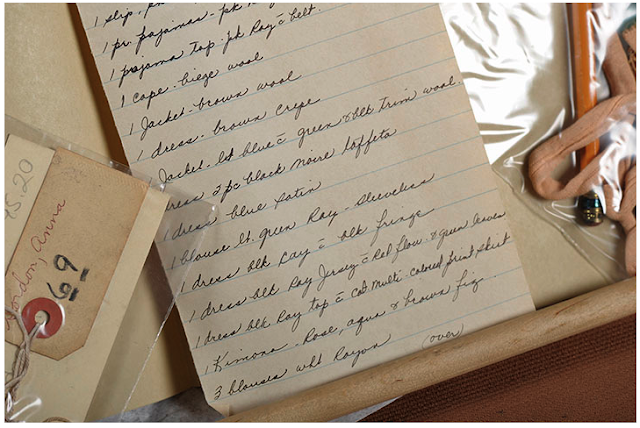 1 slip,
1 pr. pajamas - pk
1 pajama top - pk Ray c̄ belt.
1 cape - biege wool
1 Jacket - brown wool
1 dress - brown crepe
Jacket - lt blue c̄ green & blk trim wool.
ress 2 pc black moire taffeta
1 dress blue satin
1 blouse lt. green Ray - Sleeveless
1 dress blk Ray c̄ blk fringe
1 dress blk Ray Jersey c̄ Red flow. & green leaves
1 dress blk Ray top c̄ Cot multi. colored print skirt
1 Kimona - Rose, aqua & brown fig.
3 blouses wht Rayon (over)
45-20
Anna
69